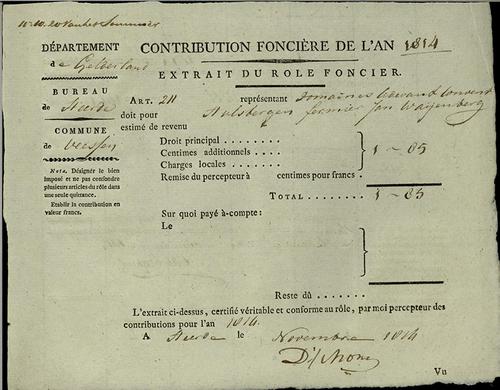 DÉPARTEMENT
de Gelderland
BUREAU
de Heerde
COMMUNE
de Veessen
Nota. Désigner le bien
imposé et ne pas confondre
plusieurs articles du rôle dans
une seule quittance.
Etablir la contribution en
valeur francs.
CONTRIBUTION FONCIÈRE DE L'AN 1814
EXTRAIT DU ROLE FONCIER.
ART. 211 représentant Domaines Couvent
doit pour Hulsbergen fermier Jan
estimé de revenu
Droit principal
Centimes additionnels
Charges locales
1 - 85
Remise du percepteur à centimes pour francs.
TOTAL 1 - 85
Sur quoi payé à-compte:
Le
Reste dû
L'extrait ci-dessus, certifié véritable et conforme au rôle, par moi percepteur des
contributions pour l'an 1814.
A Heerde le Novembre 1814
Vu